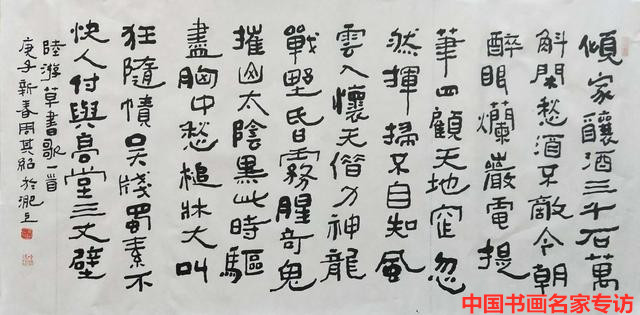 傾家釀酒三千石萬
斛閑愁酒不敵今朝
醉眼爛巖電提
筆四顧天地窄忽
然揮掃不自知風
雲入懷天借力神龍
戰野昏霧腥奇鬼
摧山太陰黑此時驅
盡胸中愁槌牀大叫
狂隨幘吳牋蜀素不
快人付與高堂三丈壁
陸游草書歌一首
庚子新春周其紹於淝上
中国书画名家专访